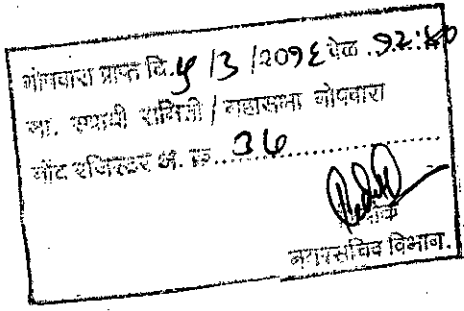 गोषवारा प्राप्त दि. ५/3/2०१६ वेळ .१२:४०
मा. स्थायी समिती / महासभा गोषवारा
नोंद रजिस्टर अ. क्र. ..36............
नगरसचिव विभाग.